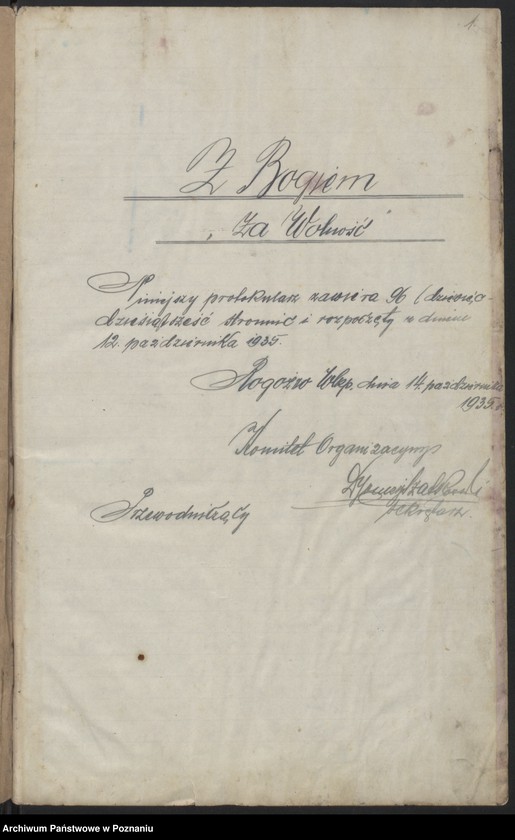 1.
Z Bogiem
"Za Wolność"
Niniejszy protokularz zawiera 96 (dziewięć-
dziesiątsześć stronnic i rozpoczęty w dniu
12. października 1935.
Rogoźno Wlkp. dnia 14. października
1935. r.
Komitet Organizacyjny
sekretarz.
Przewodniczący
Archiwum Państwowe w Poznaniu